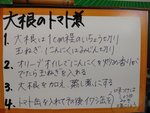 大根のトマト煮
1. 大根は1cm程のいちょう切り
玉ねぎ、にんにくはみじん切り
2. オリーブオイルでにんにくを炒め香りが
でたら玉ねぎを入れる
3. 大根を加え、蒸し煮にする
4. トマト缶を入れて